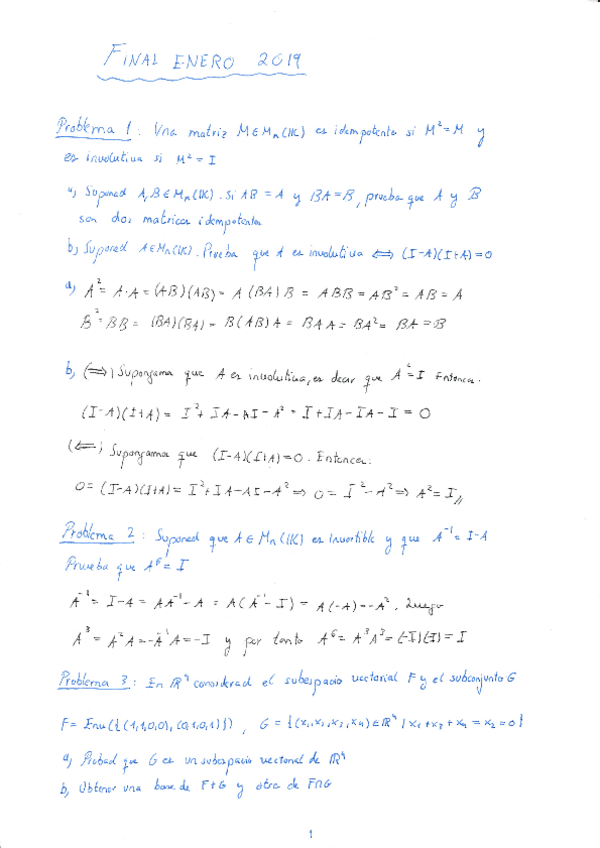 FINAL ENERO 2019
Problema 1: Una matriz M∈Mn(K) es idempotente si M²=M y
es involutiva si M²=I
a) Suponed A,B∈Mn(K). Si AB=A y BA=B, prueba que A y B
son dos matrices idempotentes
b) Suponed A∈Mn(K). Prueba que A es involutiva ⟺ (I-A)(I+A)=0
a) A²=A·A=(AB)(AB)=A(BA)B=ABB=AB²=AB=A
B²=BB=(BA)(BA)=B(AB)A=BAA=BA²=BA=B
b) (⟹) Supongamos que A es involutiva, es decir que A²=I Entonces.
(I-A)(I+A)=I²+IA-AI-A²=I+IA-IA-I=0
(⟸) Supongamos que (I-A)(I+A)=0. Entonces:
0=(I-A)(I+A)=I²+IA-AI-A²⟹0=I²-A²⟹A²=I//
Problema 2: Suponed que A∈Mn(K) es invertible y que A⁻¹=I-A
Prueba que A⁶=I
A⁻¹=I-A=AA⁻¹-A=A(A⁻¹-I)=A(-A)=-A². Luego
A³=A²A=-A⁻¹A=-I y por tanto A⁶=A³A³=(-I)(-I)=I
Problema 3: En ℝ⁴ considerad el subespacio vectorial F y el subconjunto G
F=Env({(1,1,0,0),(0,1,0,1)}), G={(x₁,x₂,x₃,x₄)∈ℝ⁴/x₁+x₃+x₄=x₂=0}
a) Probad que G es un subespacio vectorial de ℝ⁴
b) Obtener una base de F+G y otra de F∩G
1